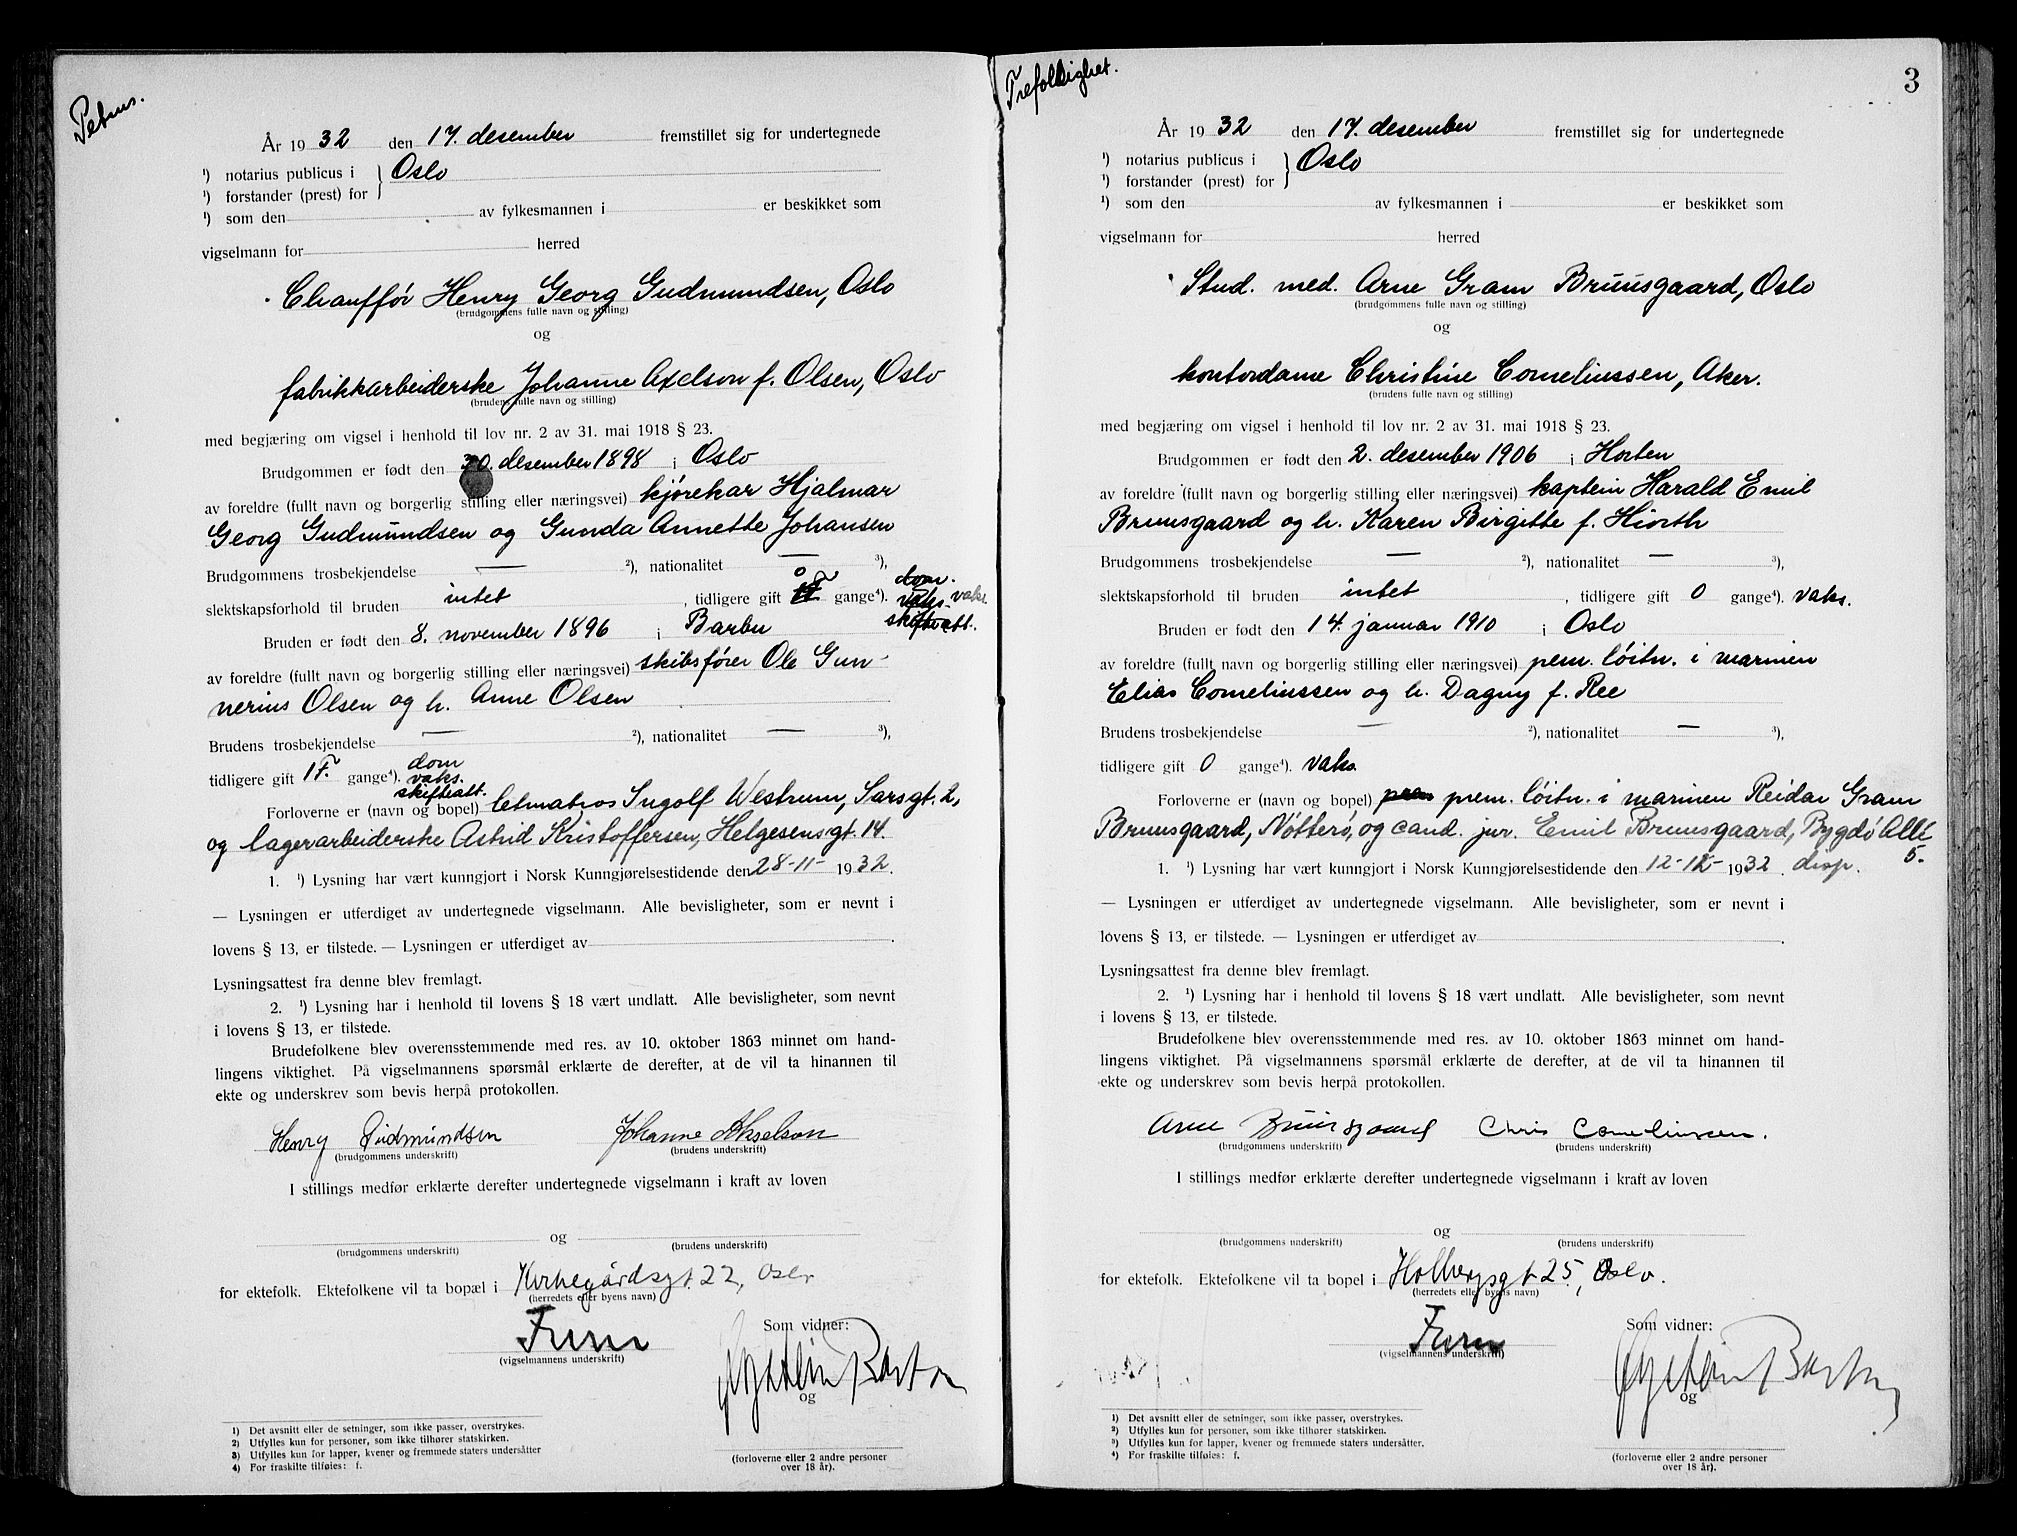 Petrus.
År 1932 den 17. desember fremstillet sig for undertegnede
¹) notarius publicus i } Oslo
¹) forstander (prest) for
¹) som den av fylkesmannen i er beskikket som
vigselmann for herred
Chauffør Henry Georg Gudmundsen, Oslo
(brudgommens fulle navn og stilling)
og
fabrikkarbeiderske Johanne Axelson f. Olsen, Oslo
(brudens fulle navn og stilling)
med begjæring om vigsel i henhold til lov nr. 2 av 31. mai 1918 § 23.
Brudgommen er født den 30. desember 1898 i Oslo
av foreldre (fullt navn og borgerlig stilling eller næringsvei) kjørekar Hjalmar
Georg Gudmundsen og Gunda Annette Johansen
Brudgommens trosbekjendelse — ²), nationalitet — ³),
slektskapsforhold til bruden intet , tidligere gift 0 gange⁴). dom. vaks. vaks. skifteatt.
Bruden er født den 8. november 1896 i Barbu
av foreldre (fullt navn og borgerlig stilling eller næringsvei) skibsfører Ole Gun-
nerius Olsen og h. Anne Olsen
Brudens trosbekjendelse — ²), nationalitet — ³),
tidligere gift 1 F. gange⁴). dom vaks. skifteatt.
Forloverne er (navn og bopel) letmatros Ingolf Westrum, Sarsgt. 2,
og lagerarbeiderske Astrid Kristoffersen, Helgesensgt. 14.
1. ¹) Lysning har vært kunngjort i Norsk Kunngjørelsestidende den 28-11- 1932.
— Lysningen er utferdiget av undertegnede vigselmann. Alle bevisligheter, som er nevnt i
lovens § 13, er tilstede. — Lysningen er utferdiget av .
Lysningsattest fra denne blev fremlagt.
2. ¹) Lysning har i henhold til lovens § 18 vært undlatt. Alle bevisligheter, som nevnt
i lovens § 13, er tilstede.
Brudefolkene blev overensstemmende med res. av 10. oktober 1863 minnet om hand-
lingens viktighet. På vigselmannens spørsmål erklærte de derefter, at de vil ta hinannen til
ekte og underskrev som bevis herpå protokollen.
Henry Gudmundsen Johanne Akselson
(brudgommens underskrift) (brudens underskrift)
I stillings medfør erklærte derefter undertegnede vigselmann i kraft av loven
og
(brudgommens underskrift) (brudens underskrift)
for ektefolk. Ektefolkene vil ta bopæl i Kirkegårdsgt 22, Oslo
(herredets eller byens navn)
Som vidner:
(vigselmannens underskrift)
og
1) Det avsnitt eller de setninger, som ikke passer, overstrykes.
2) Utfylles kun for personer, som ikke tilhører statskirken.
3) Utfylles kun for lapper, kvener og fremmede staters undersåtter
4) For fraskilte tilføies: f.
(forloverne eller 2 andre personer
over 18 år).
Trefoldighet.
3
År 1932 den 17. desember fremstillet sig for undertegnede
¹) notarius publicus i } Oslo
¹) forstander (prest) for
¹) som den av fylkesmannen i er beskikket som
vigselmann for herred
Stud. med. Arne Gram Bruusgaard, Oslo
(brudgommens fulle navn og stilling)
og
kontordame Christine Corneliussen, Aker.
(brudens fulle navn og stilling)
med begjæring om vigsel i henhold til lov nr. 2 av 31. mai 1918 § 23.
Brudgommen er født den 2. desember 1906 i Horten
av foreldre (fullt navn og borgerlig stilling eller næringsvei) kaptein Harald Emil
Bruusgaard og h. Karen Birgitte f. Hiorth
Brudgommens trosbekjendelse — ²), nationalitet — ³),
slektskapsforhold til bruden intet , tidligere gift 0 gange⁴). vaks.
Bruden er født den 14. januar 1910 i Oslo
av foreldre (fullt navn og borgerlig stilling eller næringsvei) prem. løitn. i marinen
Elias Corneliussen og h. Dagny f. Ree
Brudens trosbekjendelse — ²), nationalitet — ³),
tidligere gift 0 gange⁴). vaks.
Forloverne er (navn og bopel) prem prem. løitn. i marinen Reidar Gram
Bruusgaard, Nøtterø, og cand. jur. Emil Bruusgaard, Bygdø Allé 5.
1. ¹) Lysning har vært kunngjort i Norsk Kunngjørelsestidende den 12-12- 1932. disp.
— Lysningen er utferdiget av undertegnede vigselmann. Alle bevisligheter, som er nevnt i
lovens § 13, er tilstede. — Lysningen er utferdiget av .
Lysningsattest fra denne blev fremlagt.
2. ¹) Lysning har i henhold til lovens § 18 vært undlatt. Alle bevisligheter, som nevnt
i lovens § 13, er tilstede.
Brudefolkene blev overensstemmende med res. av 10. oktober 1863 minnet om hand-
lingens viktighet. På vigselmannens spørsmål erklærte de derefter, at de vil ta hinannen til
ekte og underskrev som bevis herpå protokollen.
Arne Bruusgaard Chris Corneliussen.
(brudgommens underskrift) (brudens underskrift)
I stillings medfør erklærte derefter undertegnede vigselmann i kraft av loven
og
(brudgommens underskrift) (brudens underskrift)
for ektefolk. Ektefolkene vil ta bopel i Holbergsgt 25, Oslo.
(herredets eller byens navn)
Som vidner:
(vigselmannens underskrift)
og
1) Det avsnitt eller de setninger, som ikke passer, overstrykes.
2) Utfylles kun for personer, som ikke tilhører statskirken.
3) Utfylles kun for lapper, kvener og fremmede staters undersåtter.
4) For fraskilte tilføies: f.
(forloverne eller 2 andre personer
over 18 år).